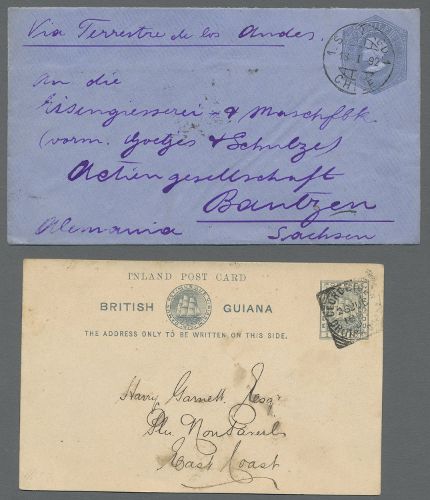 Via Terrestre de los Andes.
An die
Eisengiesserei - & Maschfbk.
(vorm. Goetjes & Schulze)
Actiengesellschaft
Bautzen
Alemania Sachsen
INLAND POST CARD
BRITISH GUIANA
THE ADDRESS ONLY TO BE WRITTEN ON THIS SIDE.
Harry Garnett, Esqr
Pln Non Pareil
East Coast